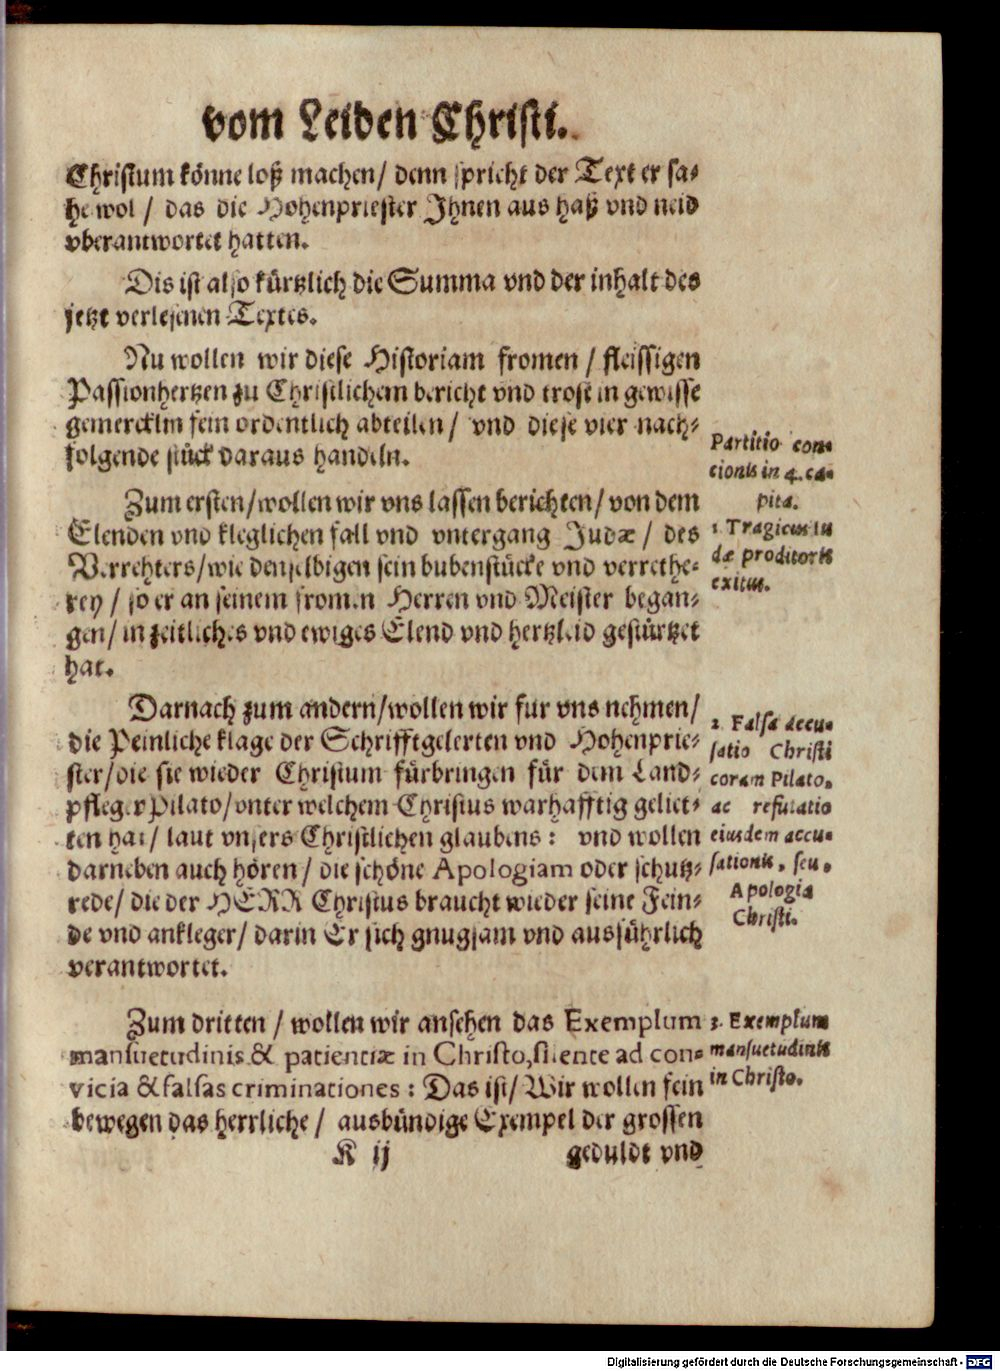 vom Leiden Christi.
Christum könne loß machen/ denn spricht der Text er sa-
he wol / das die Hohenpriester Ihnen aus haß vnd neid
vberantwortet hatten.
Dis ist also kürtzlich die Summa vnd der inhalt des
jetzt verlesenen Textes.
Nu wollen wir diese Historiam fromen / fleissigen
Passionhertzen zu Christlichem bericht vnd trost in gewisse
gemercklin fein ordentlich abteilen / vnd diese vier nach-
folgende stück daraus handeln.
Partitio con-
cionis in 4. ca-
pita.
Zum ersten/wollen wir vns lassen berichten/ von dem
Elenden vnd kleglichen fall vnd vntergang Judæ / des
Verrehters/wie denselbigen sein bubenstücke vnd verrethe-
rey / so er an seinem fromen Herren vnd Meister began-
gen/ in zeitliches vnd ewiges Elend vnd hertzleid gestürtzet
hat.
1 Tragicus Iu
dæ proditoris
exitus.
Darnach zum andern/wollen wir fur vns nehmen/
die Peinliche klage der Schrifftgelerten vnd Hohenprie-
ster/die sie wieder Christum fürbringen für dem Land-
pfleger Pilato/vnter welchem Christus warhafftig geliet-
ten hat/ laut vnsers Christlichen glaubens : vnd wollen
darneben auch hören / die schöne Apologiam oder schutz-
rede/ die der HERR Christus braucht wieder seine Fein-
de vnd ankleger/ darin Er sich gnugsam vnd ausführlich
verantwortet.
2. Falsa accu-
satio Christi
coram Pilato,
ac refutatio
eiusdem accu-
sationis, seu,
Apologia
Christi.
Zum dritten / wollen wir ansehen das Exemplum
mansuetudinis & patientiæ in Christo, silente ad con-
vicia & falsas criminationes : Das ist/ Wir wollen fein
bewegen das herrliche / ausbündige Exempel der grossen
3. Exemplum
mansuetudinis
in Christo.
K ij
geduldt vnd
Digitalisierung gefördert durch die Deutsche Forschungsgemeinschaft - DFG